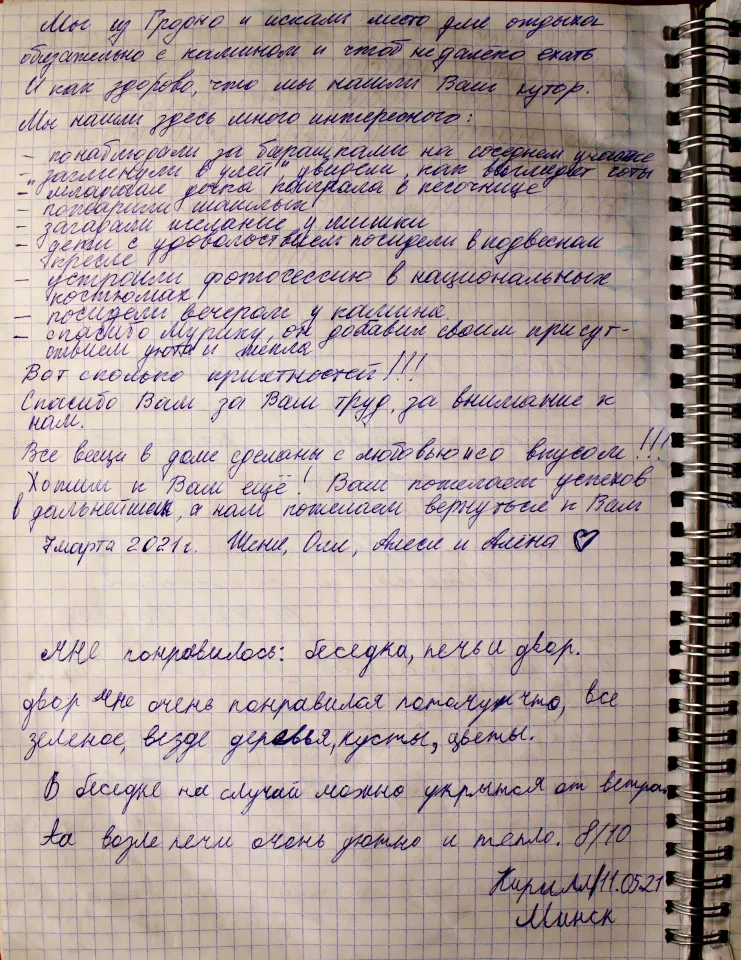 Мы из Гродно и искали место для отдыха
обязательно с камином и чтоб недалеко ехать
И как здорово, что мы нашли Ваш хутор.
Мы нашли здесь много интересного:
– понаблюдали за барашками на соседнем участке
– заглянули в "улей", увидели, как выглядят соты
– младшая дочка поиграла в песочнице
– пожарили шашлык
– загадали желание у мишки
– дети с удовольствием посидели в подвесном
кресле
– устроили фотосессию в национальных
костюмах
– посидели вечером у камина
– спасибо Мурику, он добавил своим присут-
ствием уюта и тепла
Вот сколько приятностей!!!
Спасибо Вам за Ваш труд, за внимание к
нам.
Все вещи в доме сделаны с любовью и со вкусом!!!
Хотим к Вам ещё! Вам пожелаем успехов
в дальнейшем, а нам пожелаем вернуться к Вам
7 марта 2021 г. Женя, Оля, Алеся и Алёна ♡
мне понравилось: беседка, печь и двор.
двор мне очень понравился потому что, все
зеленое, везде деревья, кусты, цветы.
В беседке на случай можно укрытся от ветра.
Аа возле печи очень уютно и тепло. 8/10
Кирилл/11.05.21
Минск